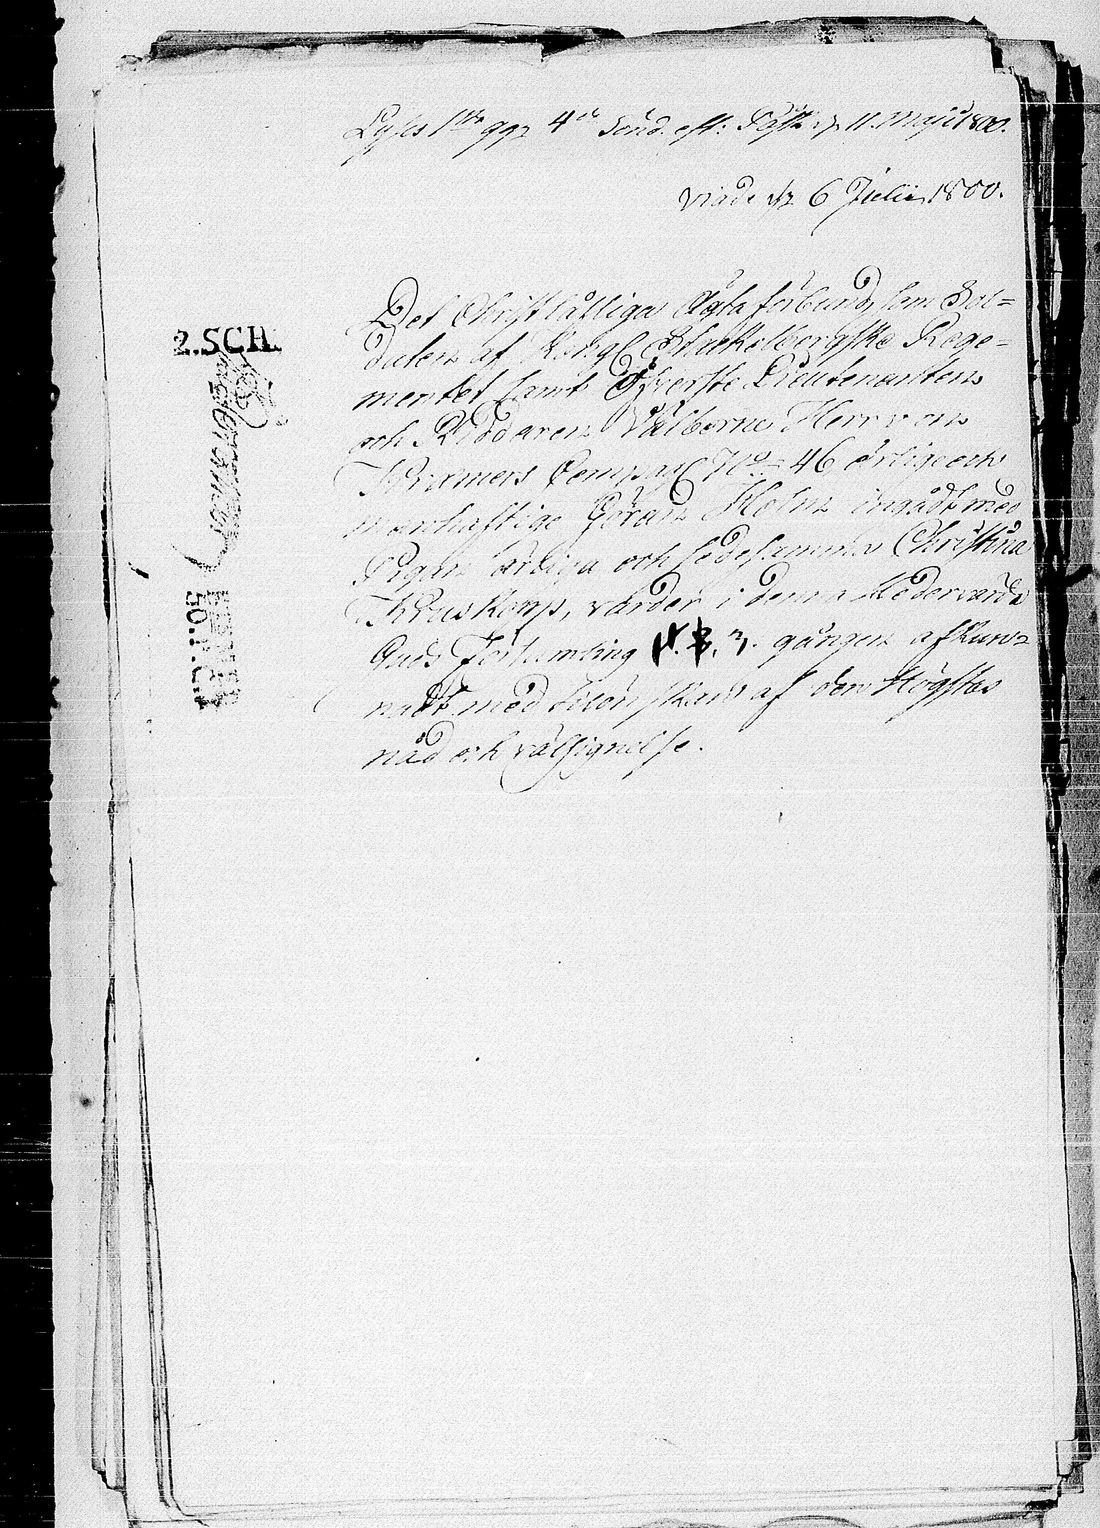 Lyses 1sta ggn 4de Sönd. eft: Påsk. d. 11. Maji 1800.
viade d. 6 Julii 1800.
Det Christkälliga Ägta förbund, som Sol=
daten af Kongl Stackelbergske Rege=
mentet samt Öfverste Lieutenantens
och Riddarens Välborne Herr von
Kræmers Compag No 46 ärlige och
manhaftige Göran Holm ingådt med
Pigan ärliga och sedesamma Christina
Kruskopp, varder i denna Hedervärda
Guds Församling 1. 2. 3. gången afkun=
nadt med tilönskan af den Högstas
nåd och välsignelse.
2.SCH.